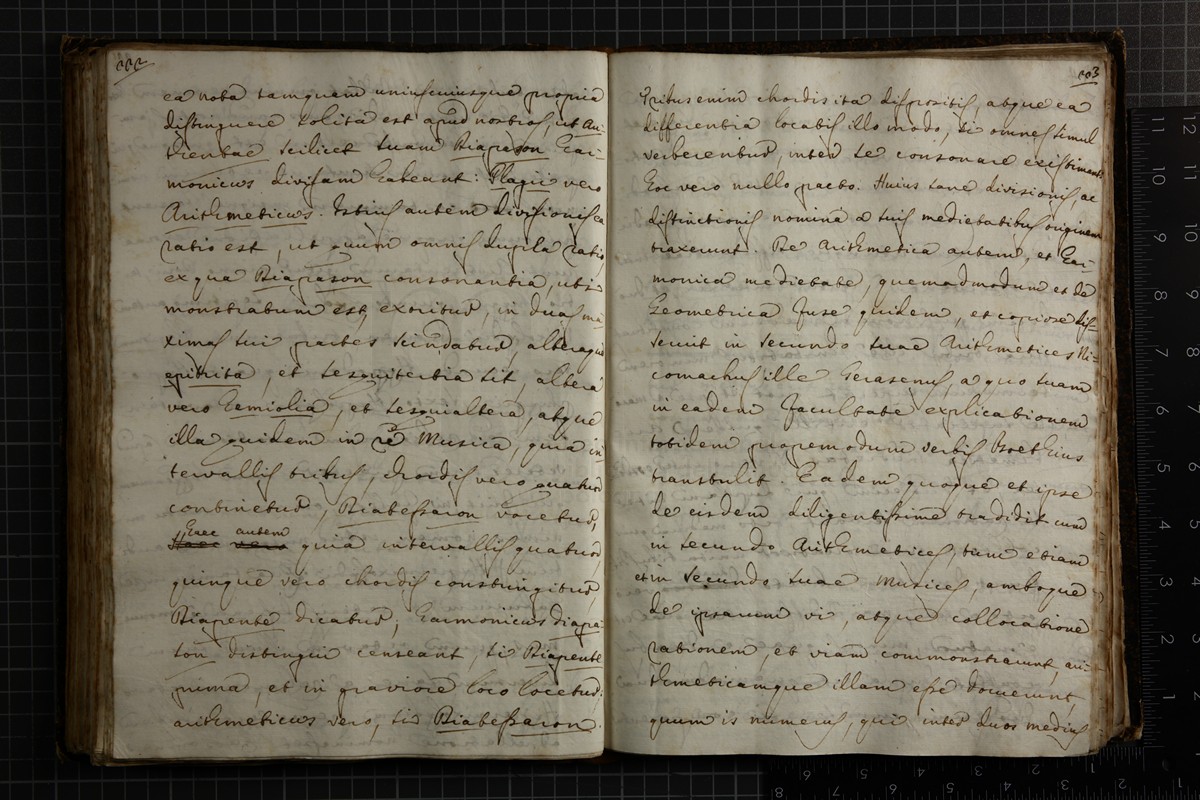 222
ea nota tamquam uniuscuiusque propria
distinguere solita est apud nostros, ut Au-
thentae scilicet suam Diapason Har-
monicωs divisam habeant: Plagii vero
Arithmeticωs. Istius autem divisionis ea
ratio est, ut quum omnis dupla ratio,
ex qua Diapason consonantia, uti
monstratum est, exoritur, in duas ma-
ximas sui partes scindatur, altera quae
epitrita, et sesquitertia sit, altera
vero hemiolia, et sesquialtera, atque
illa quidem in re Musica, quia in-
tervallis tribus, chordis vero quatuor
continetur, Diatessaron vocetur,
Haec autem
Haec vero quia intervallis quatuor,
quinque vero chordis constringitur,
Diapente dicatur; harmonicωs diapa-
son distingui censeant, si Diapente
prima, et in graviore loco locetur:
arithmeticωs vero, si Diatessaron.
223
Tribus enim chordis ita dispositis, atque ea
differentia locatis illo modo, si omnes simul
verberentur, inter se consonare existimant
hoc vero nullo pacto. Huius sane divisionis, ac
distinctionis nomina a suis medietatibus originem
traxerunt. De Arithmetica autem, et Har-
monica medietate, quemadmodum et de
Geometrica fuse quidem, et copiose dis-
seruit in secundo suae Arithmetices Ni-
comachus ille Gerasenus, a quo suam
in eadem facultate explicationem
totidem propemodum verbis Boethius
transtulit. Eadem quoque et ipse
de eisdem diligentissime tradidit cum
in secundo Arithmetices, tum etiam
et in secundo suae Musices, amboque
de ipsarum vi, atque collocatione
rationem, et viam commonstrarunt, ari-
thmeticamque illam esse docuerunt,
quum is numerus, qui inter duos medius